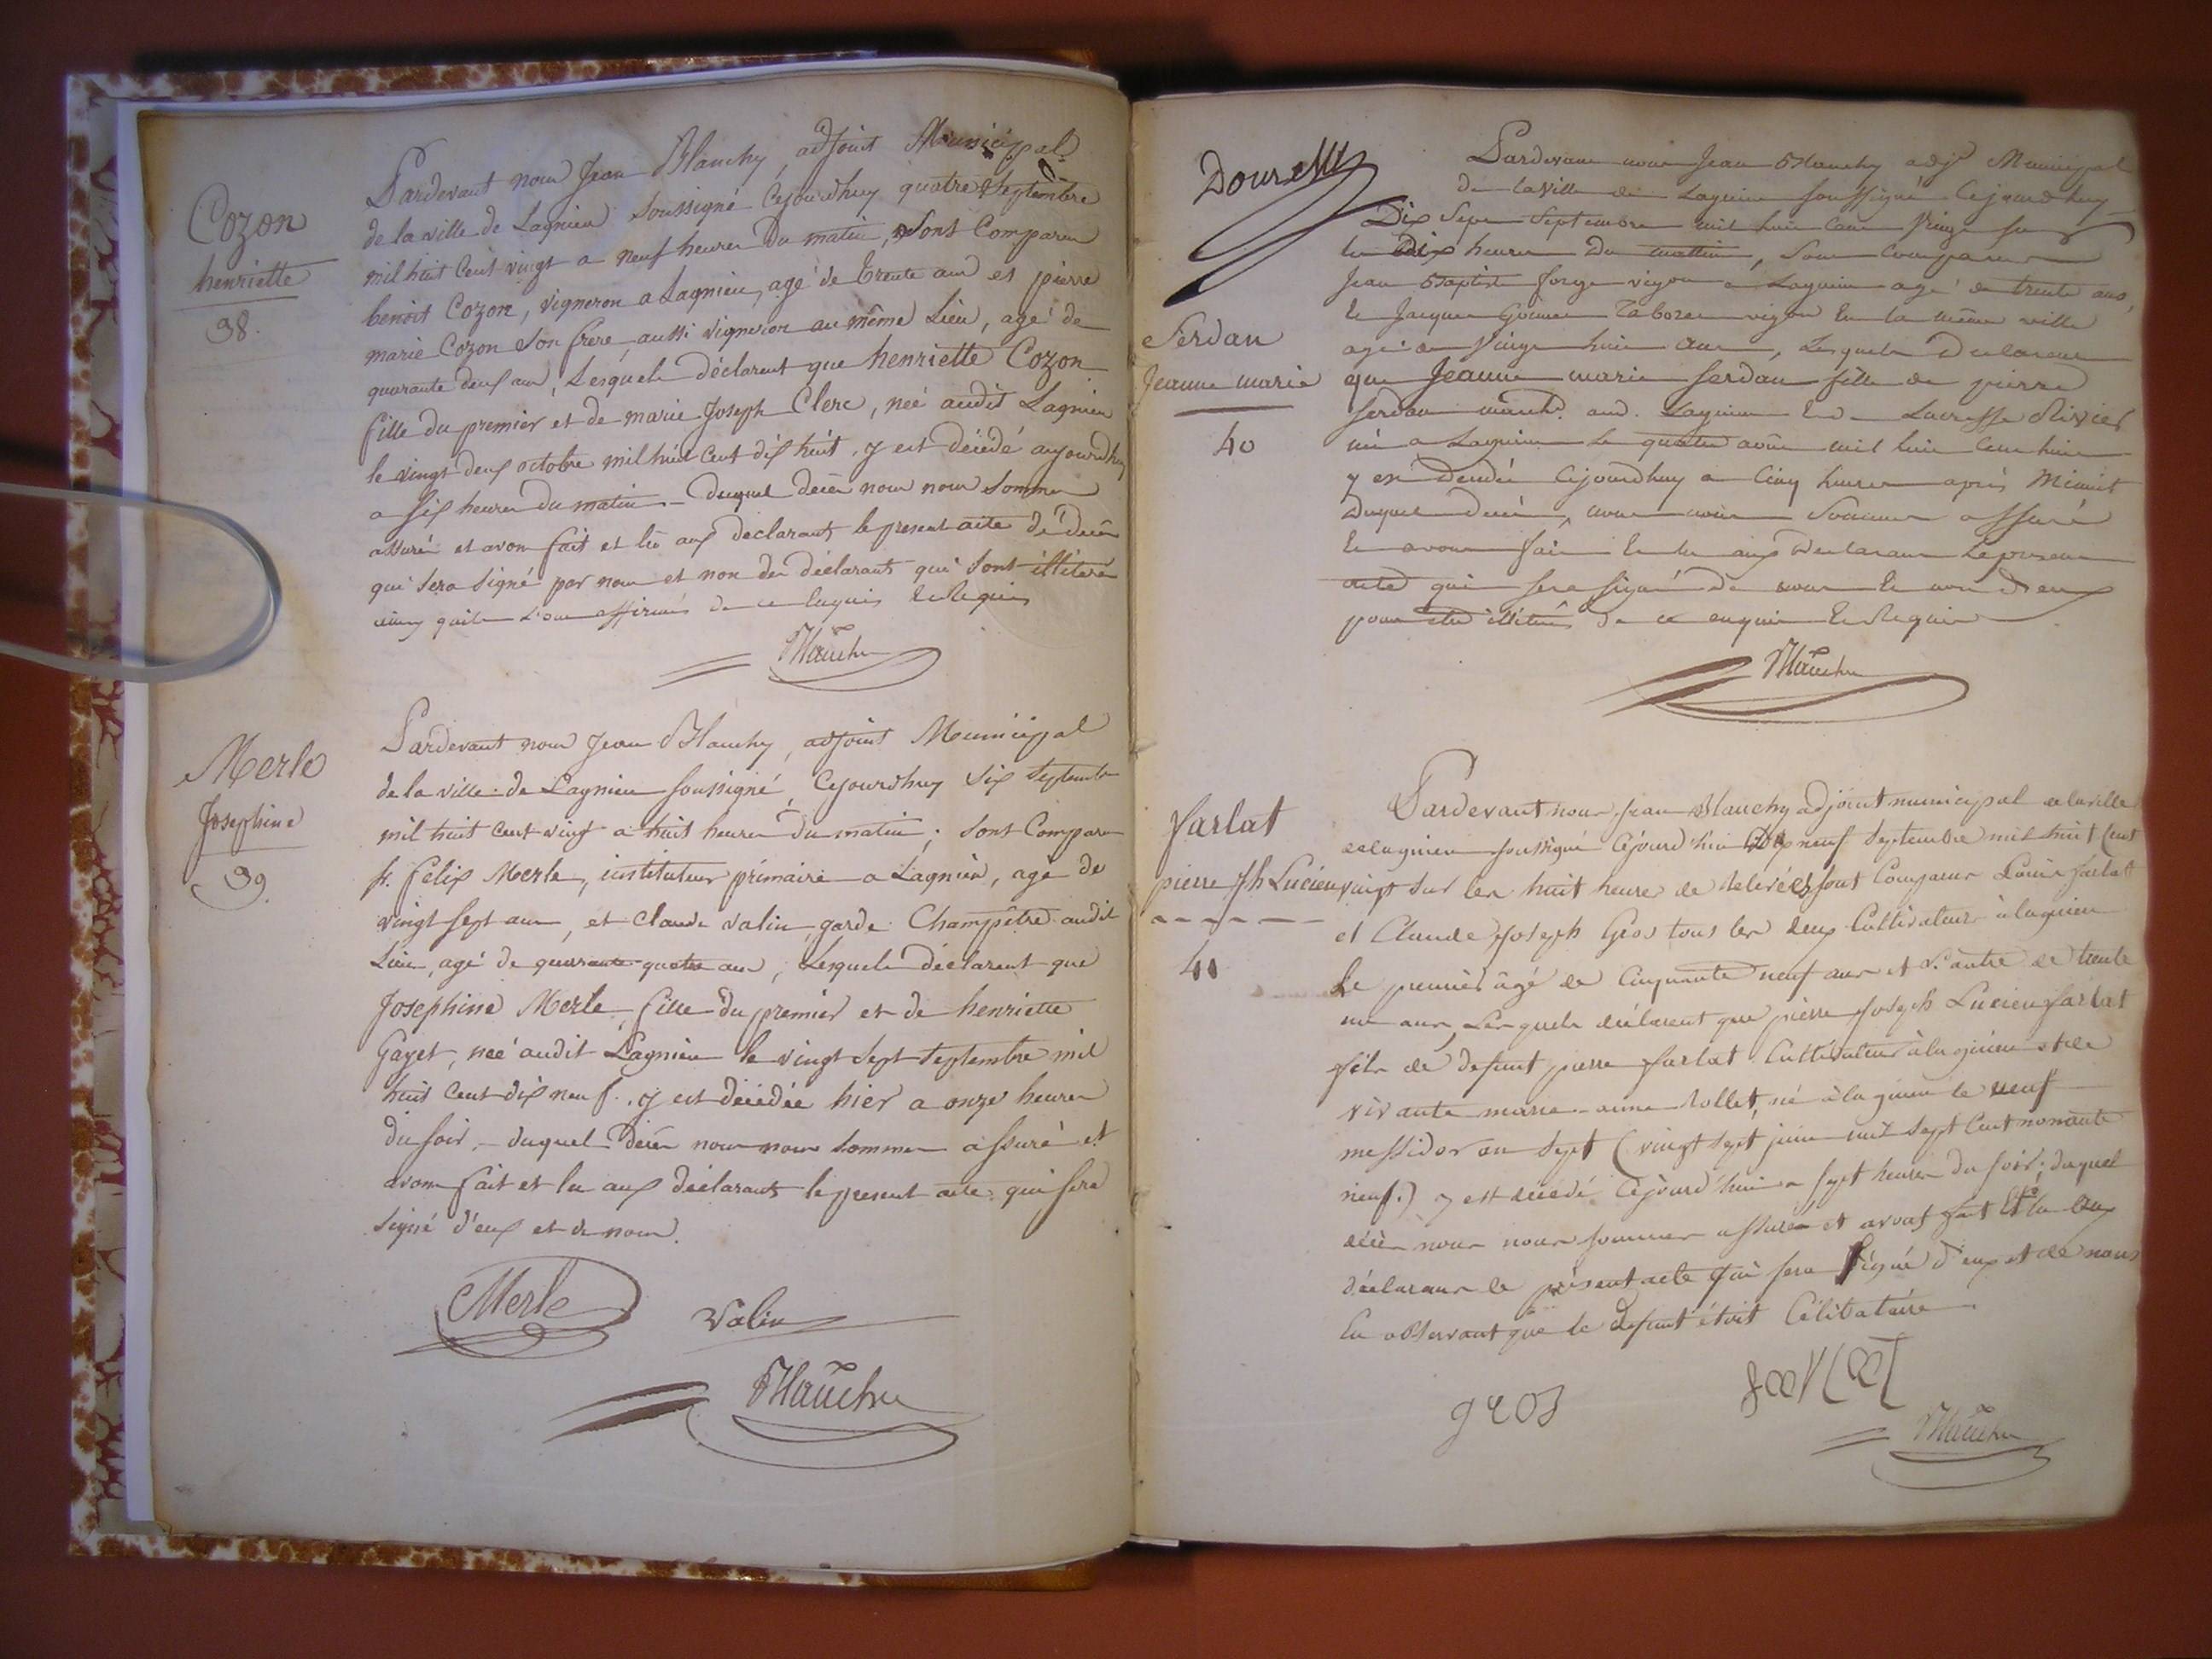 Cozon
henriette
38.
Pardevant nous Jean Blanchy, adjoint Municipal
de la ville de Lagnieu soussigné Cejourdhuy quatre Septembre
mil huit Cent vingt a neuf heures du matin, Sont Comparu
benoit Cozon, vigneron a Lagnieu, agé de trente ans et pierre
marie Cozon son frere, aussi vigneron au même Lieu, agé de
quarante deux ans, Lesquels déclarent que henriette Cozon
fille du premier et de marie Joseph Clerc, née audit Lagnieu
le vingt deux octobre mil huit Cent dix huit, y est décédé aujourdhuy
a six heures du matin - Duquel decès nous nous sommes
assuré et avons fait et lu aux declarants le present acte de decès
qui sera signé par nous et non des déclarants qui sont illiteré
ainsy quils l'ont affirmés de ce enquis et Requis
Blanchy
Merle
Josephine
39.
Pardevant nous Jean Blanchy, adjoint Municipal
de la ville de Lagnieu soussigné, Cejourdhuy six septembre
mil huit cent vingt a huit heures du matin; sont Comparu
fs. Felix Merle, instituteur primaire a Lagnieu, agé de
vingt sept ans, et Claude Valin garde Champêtre audit
Lieu, agé de quarante-quatre ans, Lesquels déclarent que
Josephine Merle, fille du premier et de henriette
Gayet, née audit Lagnieu le vingt sept septembre mil
huit Cent dix neuf. y est décédée hier a onze heures
du soir, - duquel decès nous nous sommes assuré et
avons fait et lu aux déclarants le present acte qui sera
signé d'eux et de nous.
Merle Valin
Blanchy
Serdan
Jeanne marie
40
Pardevant nous Jean Blanchy adjt Municipal
de la ville de Lagnieu soussigné Cejourdhuy
Dix Sept Septembre mil huit Cent Vingt sur
les Dix heures du matin, Sont Comparu
Jean Baptiste forge vigon a Lagnieu agé de trente ans,
et Jacques vigon en la même ville
agé de Vingt huit ans, Lesquels Declarent
que Jeanne marie Serdan fille de pierre
Serdan aud. Lagnieu et de Rivier
née a Lagnieu le quatre août mil huit Cent huit
y est Decedée Cejourdhuy a Cinq heures après Minuit
Duquel Decès, nous nous Sommes assuré
et avons fait et lu aux Declarants Le present
acte qui sera signé de nous et non d'eux
pour être illiterés de ce enquis et Requis
Blanchy
farlat
pierre Jh Lucien
41
Pardevant nous Jean Blanchy adjoint municipal de la ville
de lagnieu soussigné Cejourd'hui Dix neuf Septembre mil huit Cent
vingt sur les huit heures de Relevée sont Comparus Louis farlat
et Claude Joseph Gros tous les deux Cultivateurs à lagnieu
Le premier âgé de Cinquante neuf ans et l'autre de trente
un ans, Lesquels déclarent que pierre Joseph Lucien farlat
fils de defunt pierre farlat Cultivateur à lagnieu et de
vivante marie anne Rollet, né à lagnieu le neuf
messidor an sept (vingt sept juin mil sept Cent nonante
neuf.) y est décédé Cejourd'hui a sept heures du soir; duquel
décès nous nous sommes assurés et avons fait et lu aux
déclarans le présent acte qui sera signé d'eux et de nous
En observant que le defunt étoit Célibataire
gros farlat
Blanchy